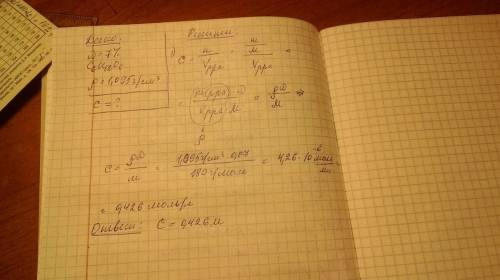 Дано:
ω = 7%
C₆H₁₂O₆
ρ = 1,095 г/см³
c = ?
Решение
1) c = n / Vрра = m/M / Vрра =
= m(рра) · ω / Vрра · M = ρω / M ⇒
ρ
c = ρω / M = 1,095 г/см³ · 0,07 / 180 г/моль = 4,26 · 10 моль / мл =
= 0,426 моль/л
Ответ: C = 0,426 М